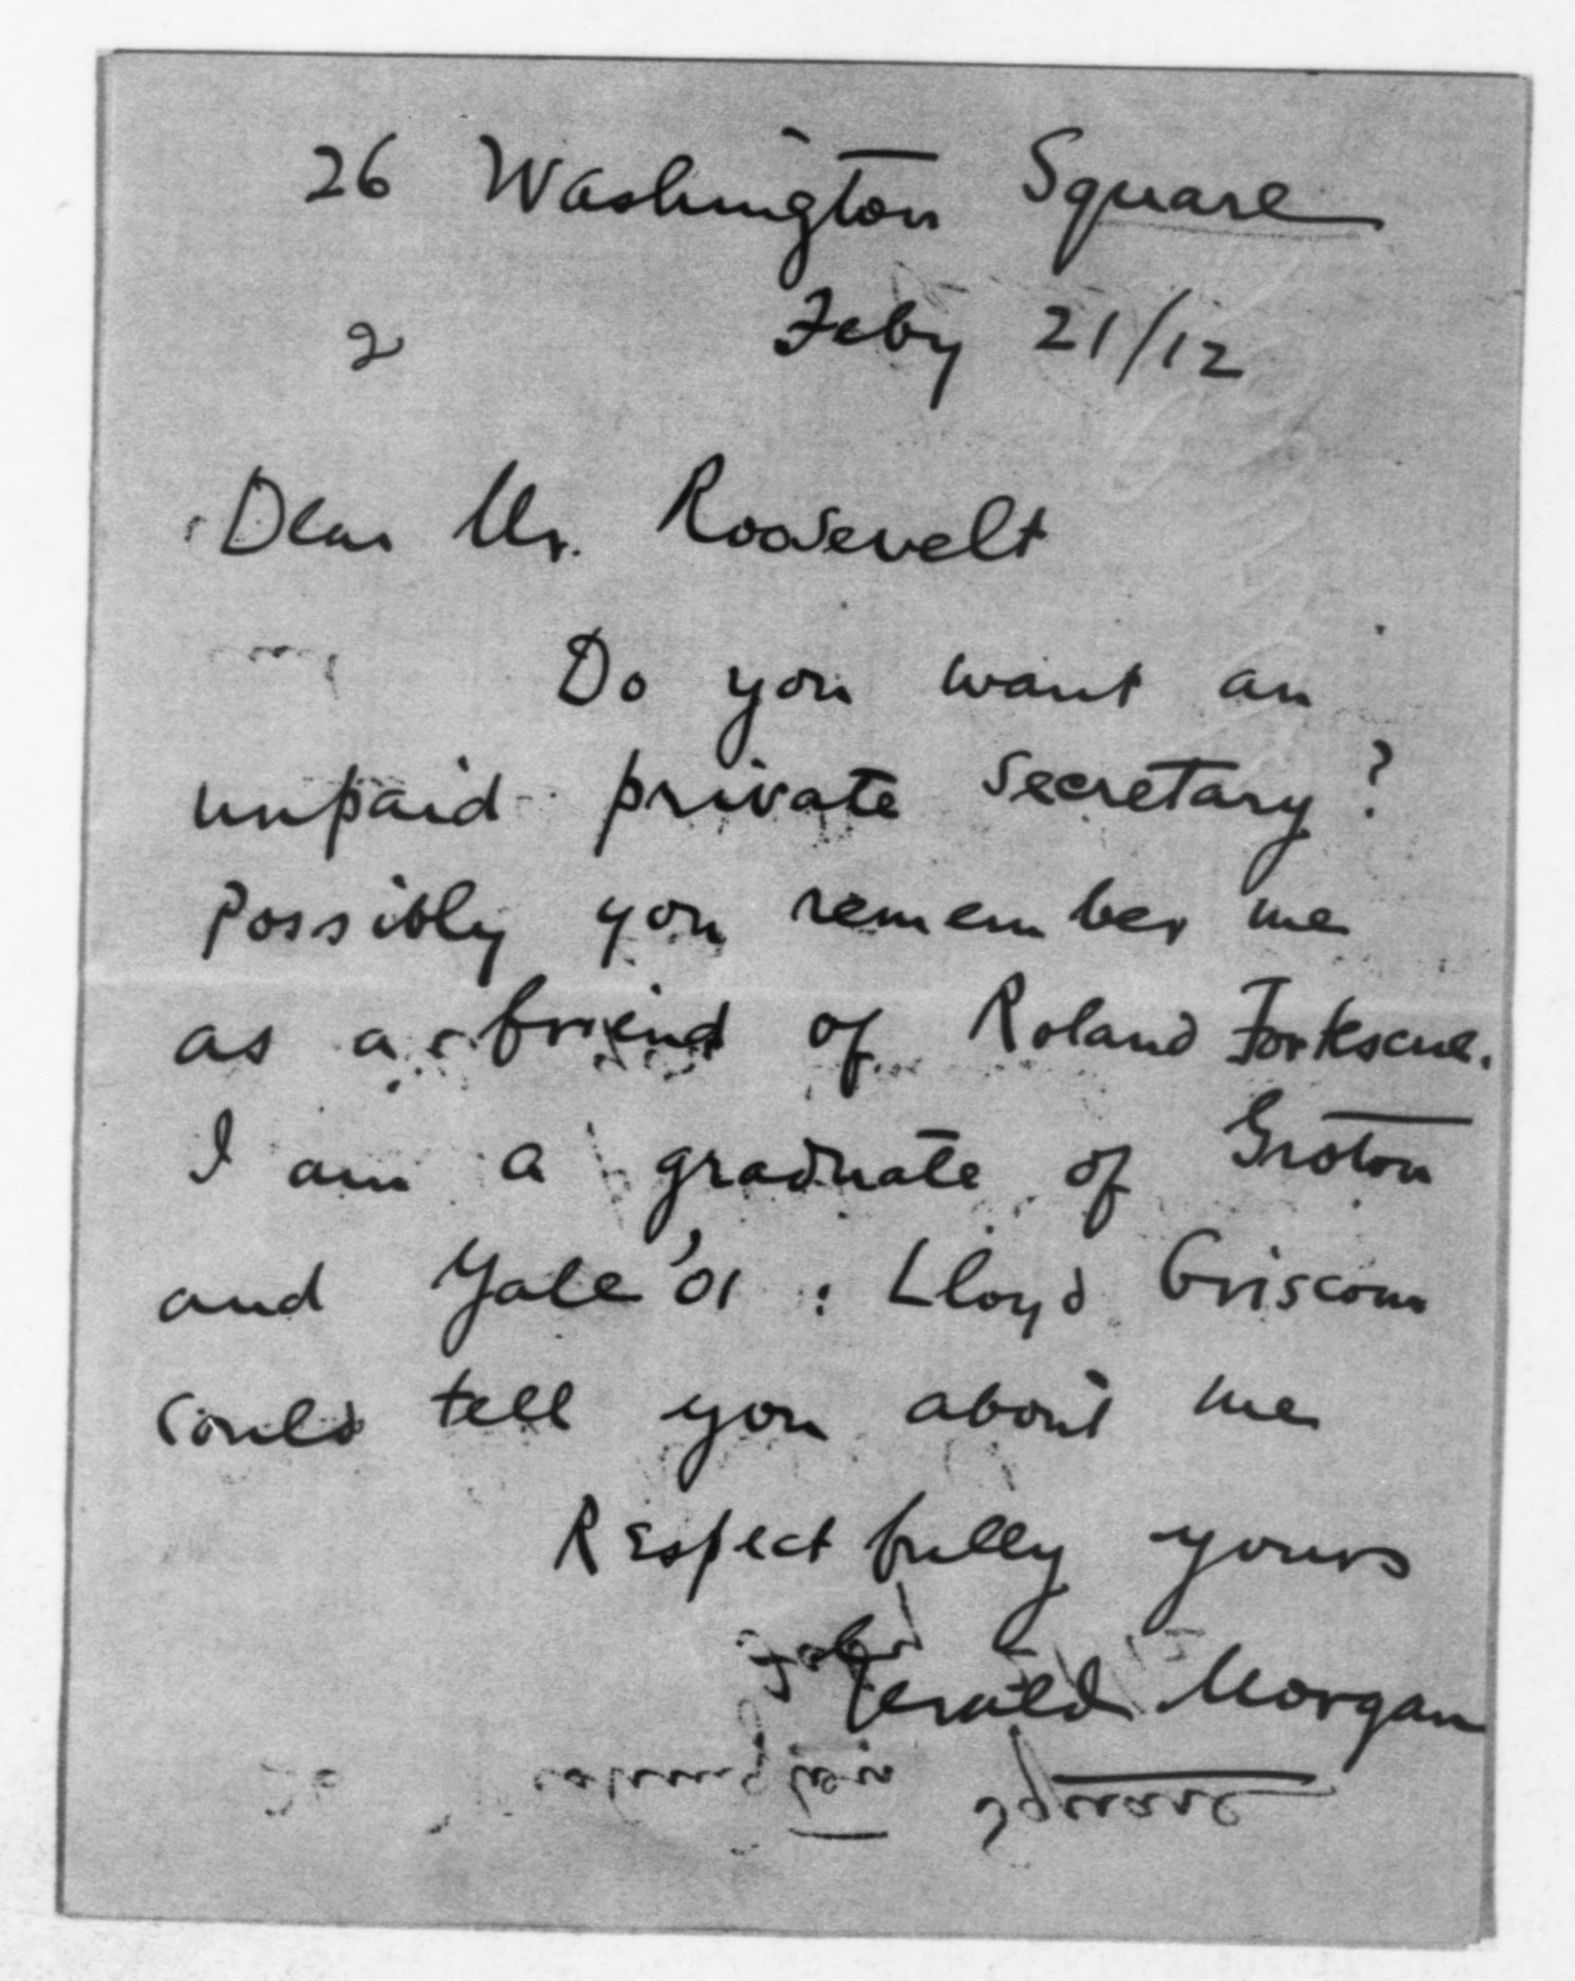 26 Washington Square
2 Feby 21/12
Dear Mr. Roosevelt
Do you want an
unpaid private secretary?
Possibly you remember me
as a friend of Roland Fortescue.
I am a graduate of Groton
and Yale '01 : Lloyd Griscom
could tell you about me
Respectfully yours
Gerald Morgan